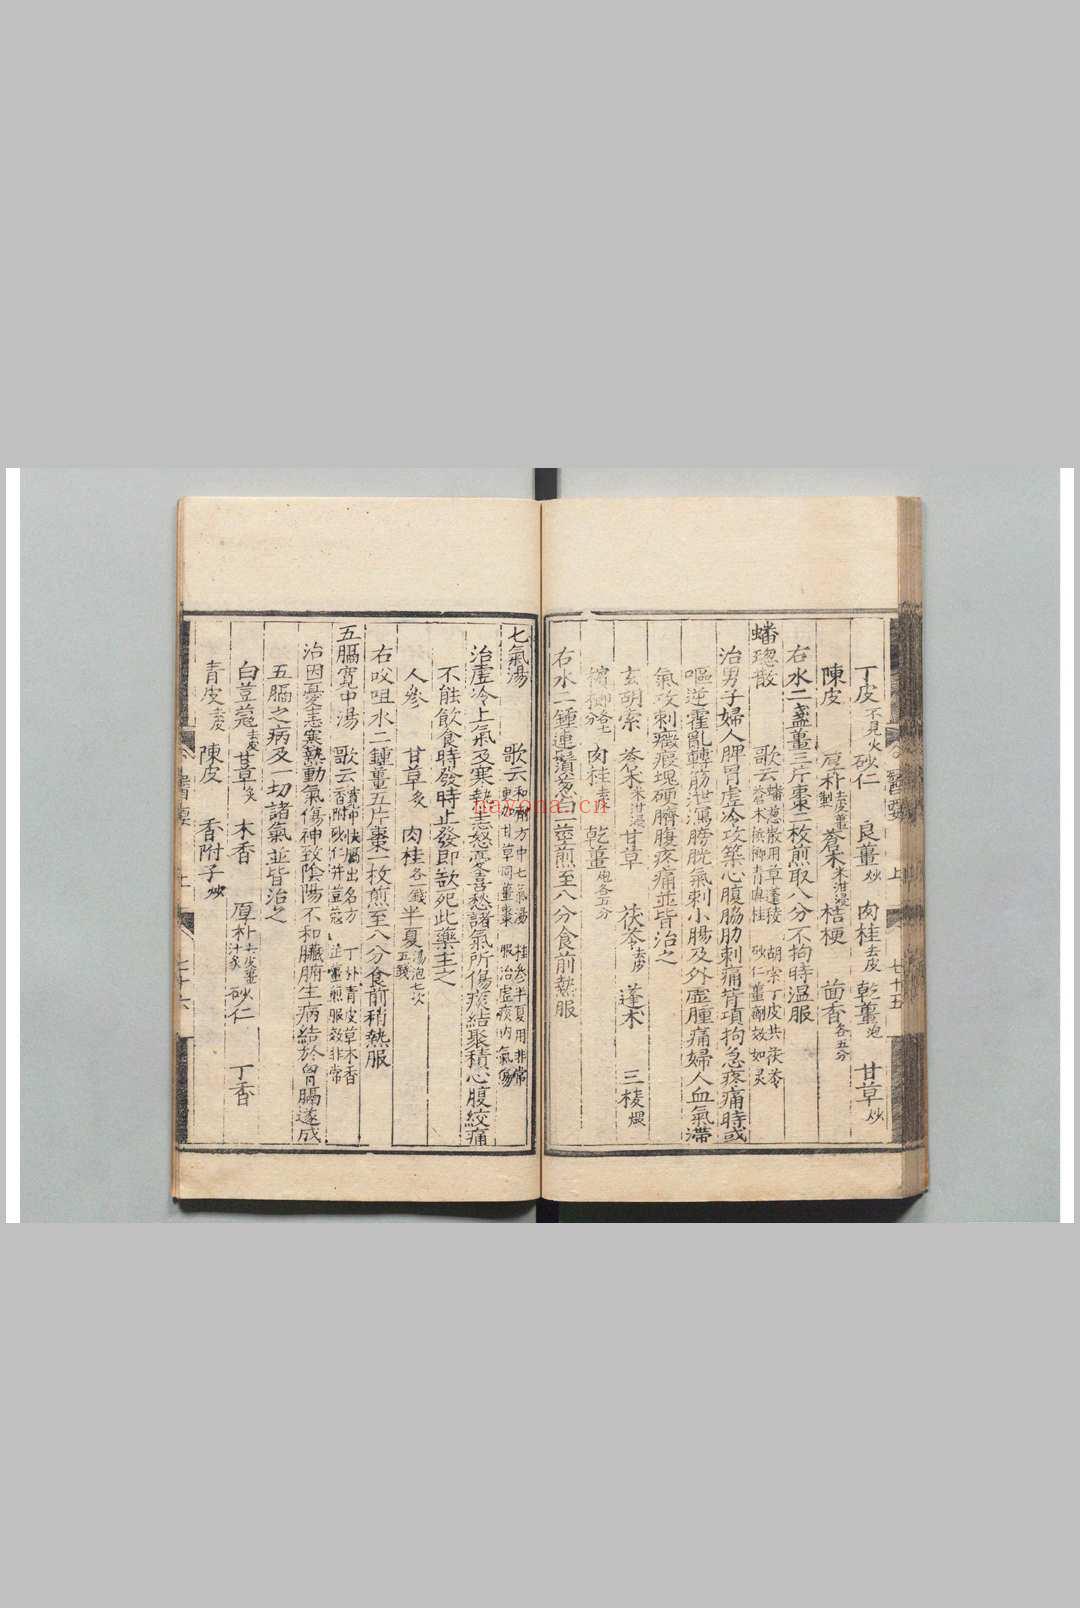 丁皮不見火 砂仁 良薑炒 肉桂去皮 乾薑炮 甘草炒
陳皮 厚朴去皮薑製 蒼朮米泔浸 桔梗 茴香各五分
右水二盞薑三片棗二枚煎取八分不拘時温服
蟠葱散 歌云蟠葱散用草蓬稜 胡索丁皮共茯苓
蒼朮檳榔青眞桂 砂仁薑劑效如灵
治男子婦人脾胃虚冷攻築心腹脇肋刺痛背項拘急疼痛時或
嘔逆霍亂轉筋泄瀉膀胱氣刺小腸及外虚腫痛婦人血氣滯
氣攻刺癥瘕塊硬臍腹疼痛並皆治之
玄胡索 蒼朮米泔浸 甘草 茯苓去皮 蓬朮 三稜煨
檳榔各七分 肉桂去皮 乾薑炮各五分
右水一鍾連鬚葱白一莖煎至八分食前熱服
醫要 上 七十五
七氣湯 歌云和劑方中七氣湯 桂參半夏用非常
更加甘草同薑棗 服治虚痰内氣傷
治虚冷上氣及寒熱恚怒憂喜愁諸氣所傷痰結聚積心腹絞痛
不能飲食時發時止發即欲死此藥主之
人參 甘草炙 肉桂各一錢 半夏湯泡七次五錢
右㕮咀水二鍾薑五片棗一枚煎至八分食前稍熱服
五膈寛中湯 歌云寛中快膈出名方 丁朴青皮草木香
香附砂仁并荳蔲 芷薑煎服效非常
治因憂恚寒熱動氣傷神致陰陽不和臟腑生病結於胷膈遂成
五膈之病及一切諸氣並皆治之
白荳蔲去皮 甘草炙 木香 厚朴去皮薑汁炙 砂仁 丁香
青皮去皮 陳皮 香附子炒
醫要 上 七十六
nayona.cn